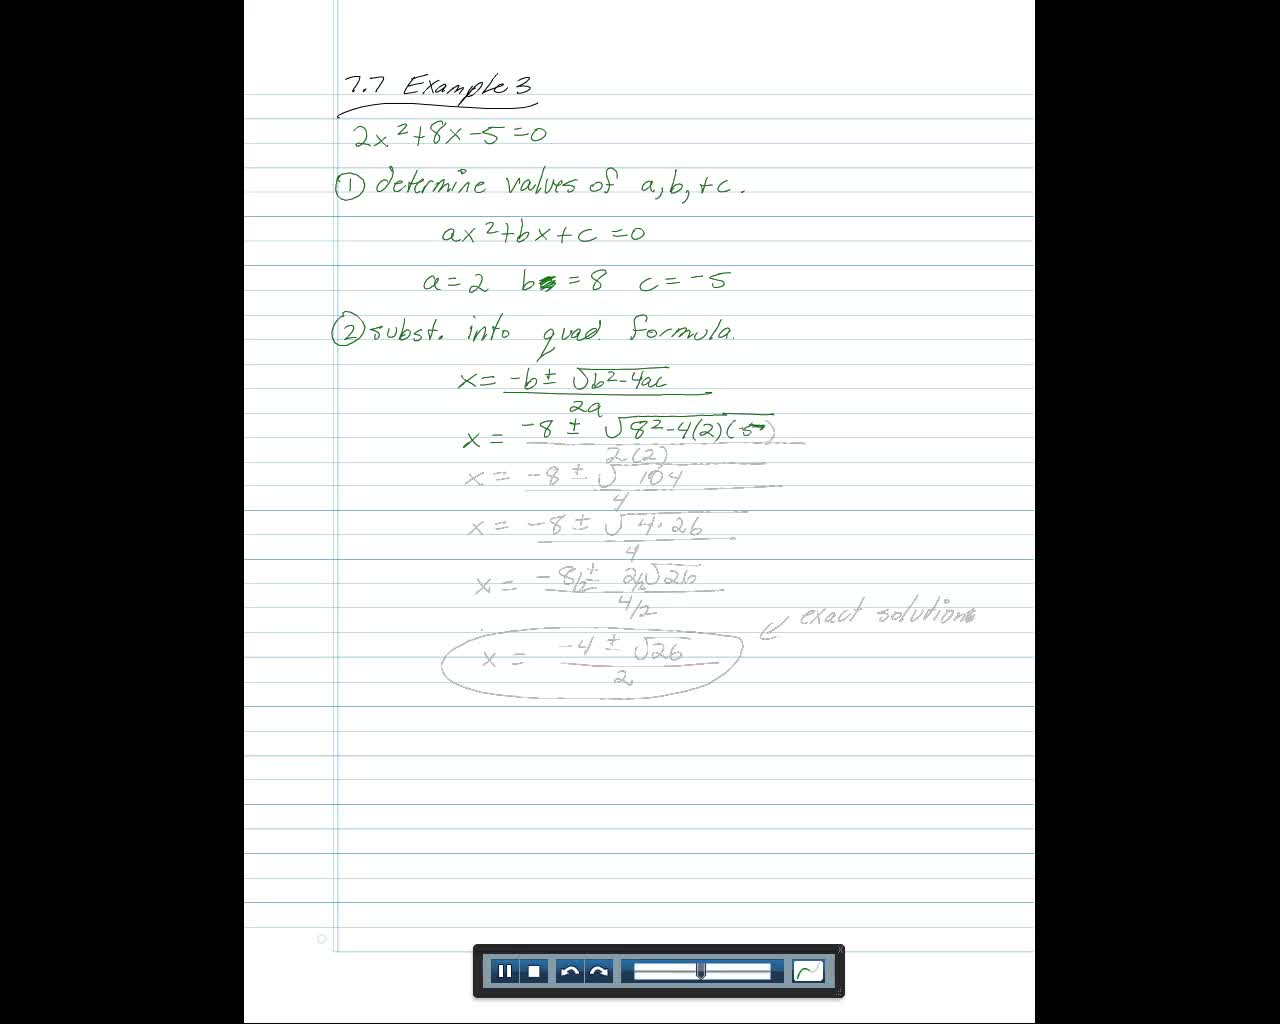 7.7 Example 3
2x²+8x-5=0
① determine values of a, b, + c.
ax²+bx+c=0
a=2 b=8 c=-5
② subst. into quad. formula.
x= -b ± √b²-4ac
2a
x = -8 ± √8²-4(2)(-5)
2(2)
x = -8 ± √104
4
x = -8 ± √4·26
4
x = -8/2 ± 2/2√26
4/2
exact solutions
x = -4 ± √26
2